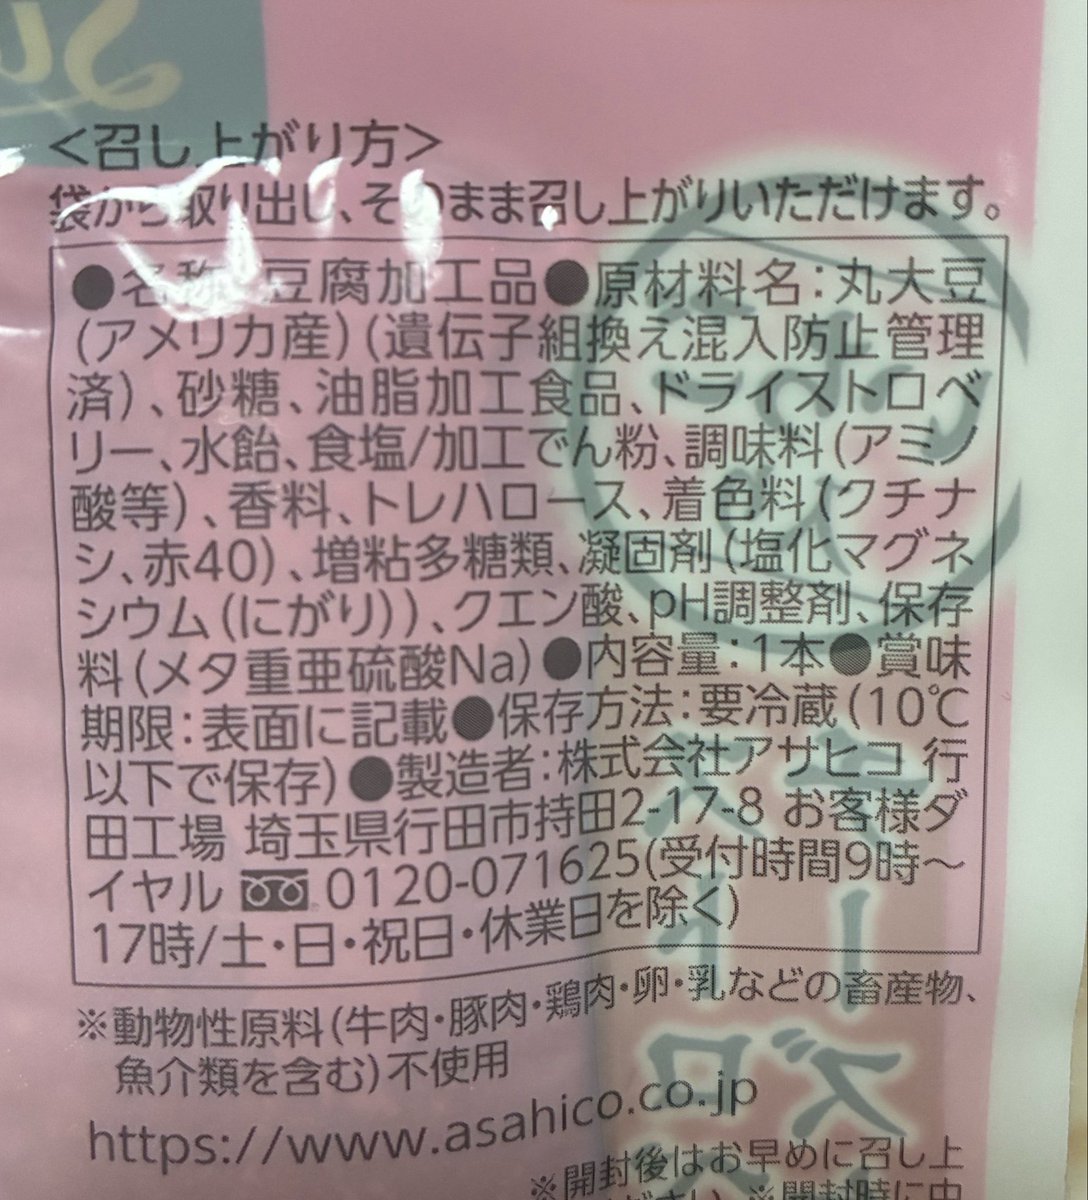 <召し上がり方>
袋から取り出し、そのまま召し上がりいただけます。
●名称:豆腐加工品●原材料名:丸大豆
(アメリカ産)(遺伝子組換え混入防止管理
済)、砂糖、油脂加工食品、ドライストロベ
リー、水飴、食塩/加工でん粉、調味料(アミノ
酸等)、香料、トレハロース、着色料(クチナ
シ、赤40)、増粘多糖類、凝固剤(塩化マグネ
シウム(にがり))、クエン酸、pH調整剤、保存
料(メタ重亜硫酸Na)●内容量:1本●賞味
期限:表面に記載●保存方法:要冷蔵(10℃
以下で保存)●製造者:株式会社アサヒコ 行
田工場 埼玉県行田市持田2-17-8 お客様ダ
イヤル 0120-071625(受付時間9時〜
17時/土・日・祝日・休業日を除く)
※動物性原料(牛肉・豚肉・鶏肉・卵・乳などの畜産物、
魚介類を含む)不使用
https://www.asahico.co.jp
※開封後はお早めに召し上
※開封時に中